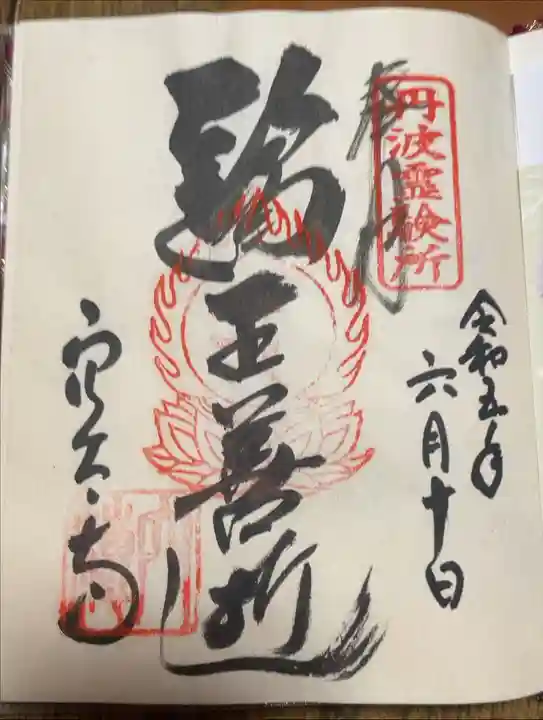 令和五年
六月十日
丹波霊験所
奉拝
輪王善逝
穴太寺